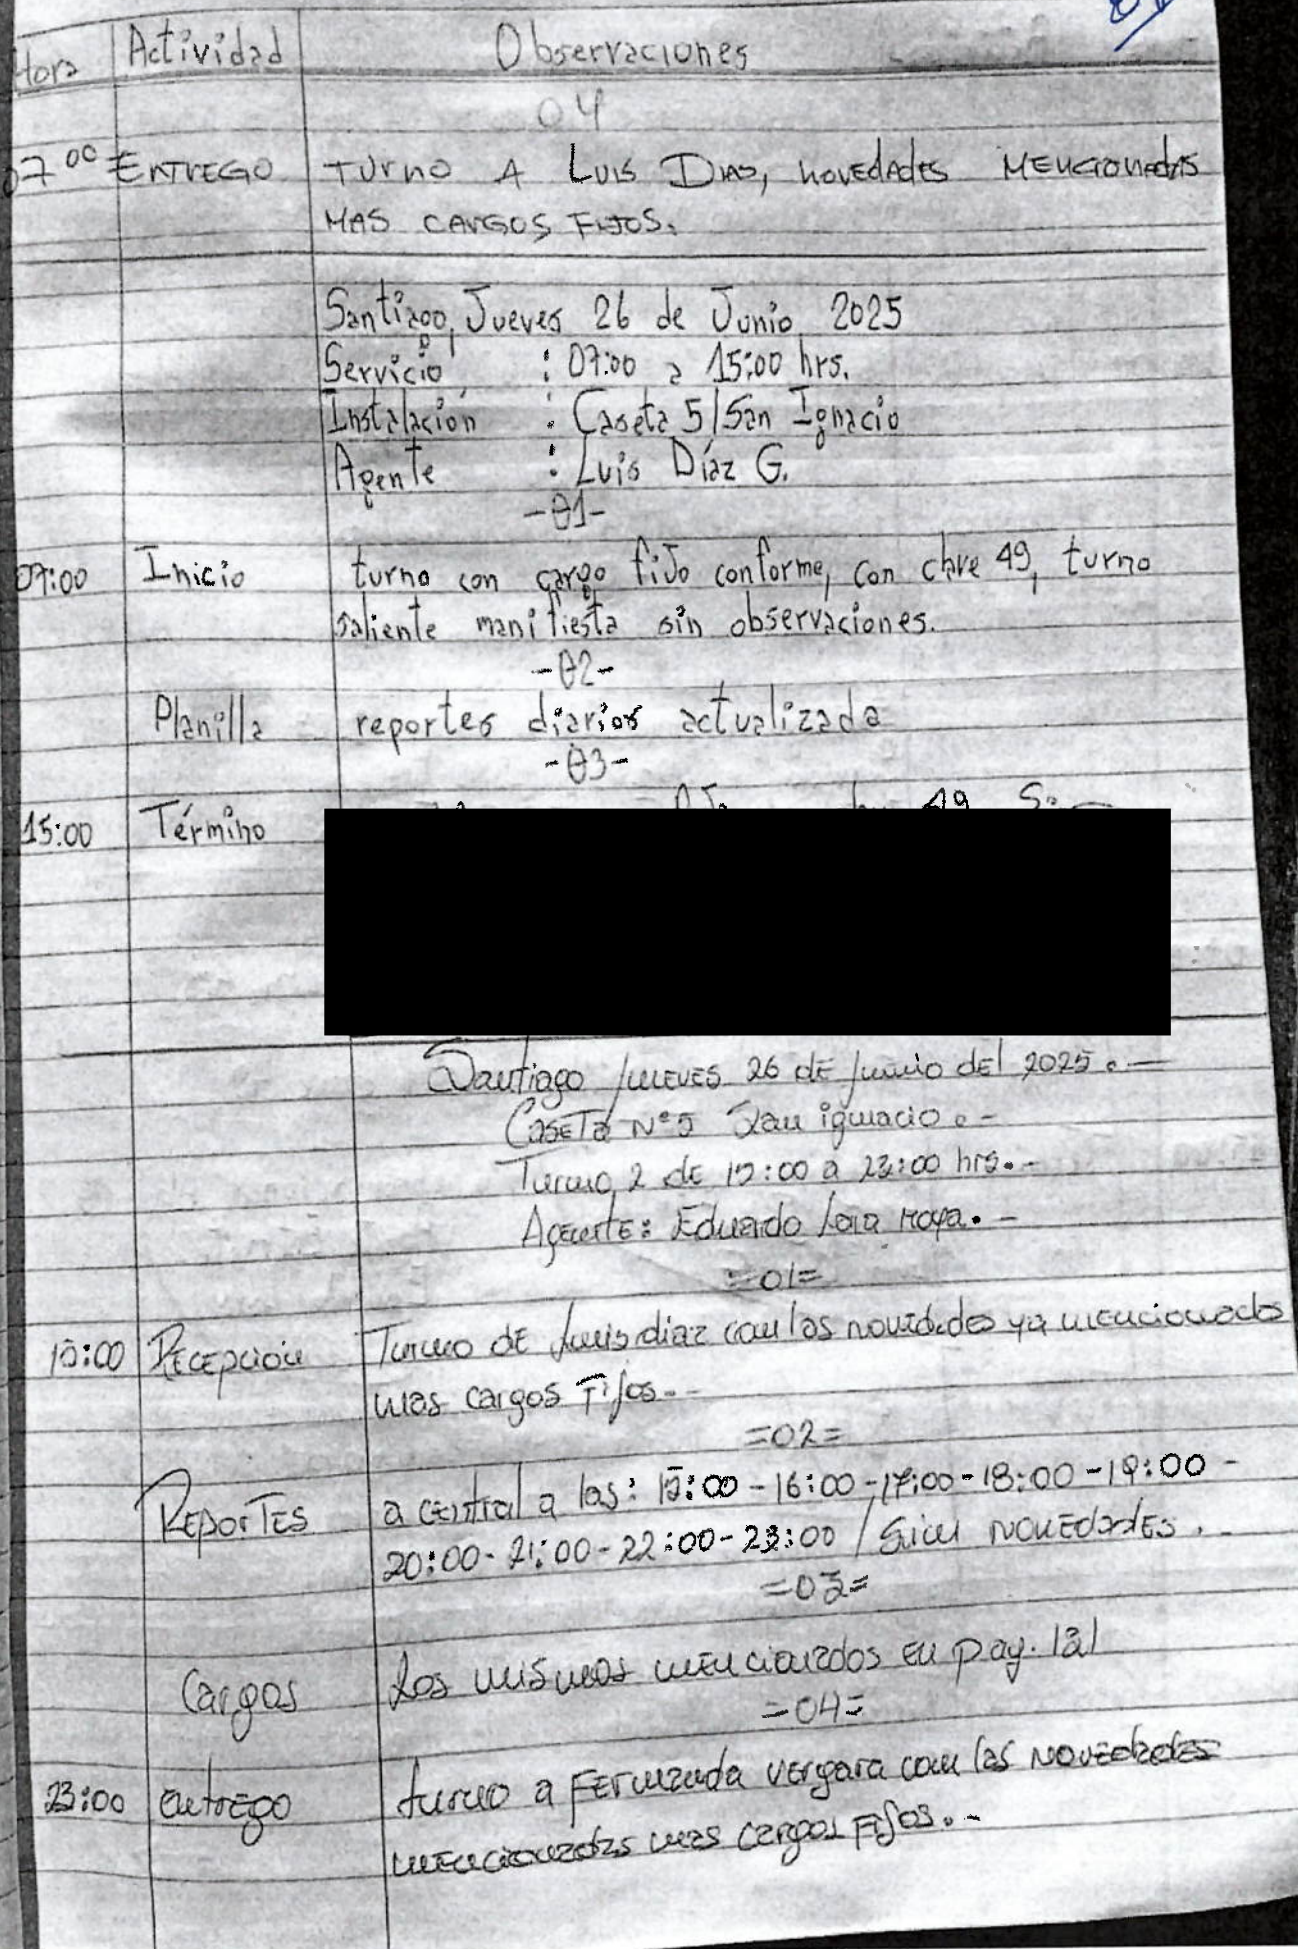 Hora Actividad Observaciones
04
07 00 ENTREGO TURNO A LUIS DIAS, NOVEDADES MENCIONADAS
MAS CARGOS FIJOS.
Santiago, Jueves 26 de Junio 2025
Servicio : 07:00 a 15:00 hrs.
Instalación : Caseta 5/San Ignacio
Agente : Luis Díaz G.
-01-
07:00 Inicio turno con cargo fijo conforme, con clave 49, turno
saliente manifiesta sin observaciones.
-02-
Planilla reportes diarios actualizada
-03-
15:00 Término 49
Santiago jueves 26 de junio del 2025.-
Caseta N°5 San ignacio.-
Turno 2 de 15:00 a 23:00 hrs.-
Agente: Eduardo moya.-
=01=
15:00 Recepcion Turno de Luis diaz con las novedades ya mencionados
mas cargos Fijos.-
=02=
Reportes a central a las: 15:00-16:00-17:00-18:00-19:00-
20:00-21:00-22:00-23:00/Sin novedades.
=03=
Cargos Los mismos mencionados en pag. 121
=04=
23:00 entrego turno a Fernanda vergara con las novedades
mencionadas mas cargos Fijos.-